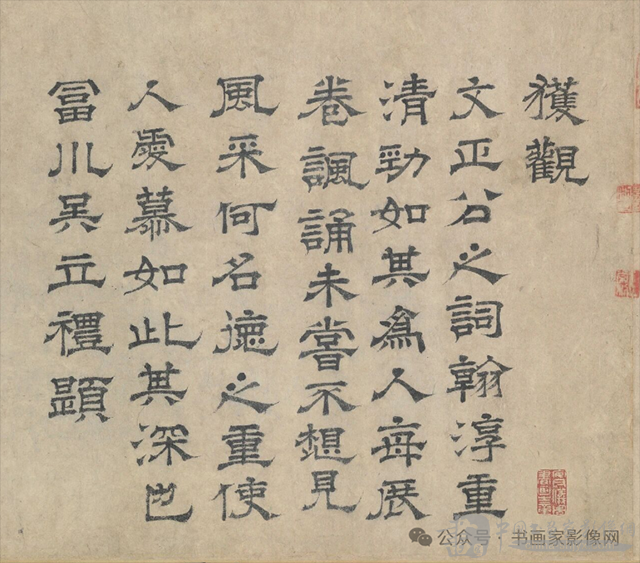 獲觀
文正公之詞翰淳重
清勁如其為人每展
卷諷誦未嘗不想見
風采何名德之重使
人愛慕如此其深也
富川吴立禮題
公众号·书画家影像网